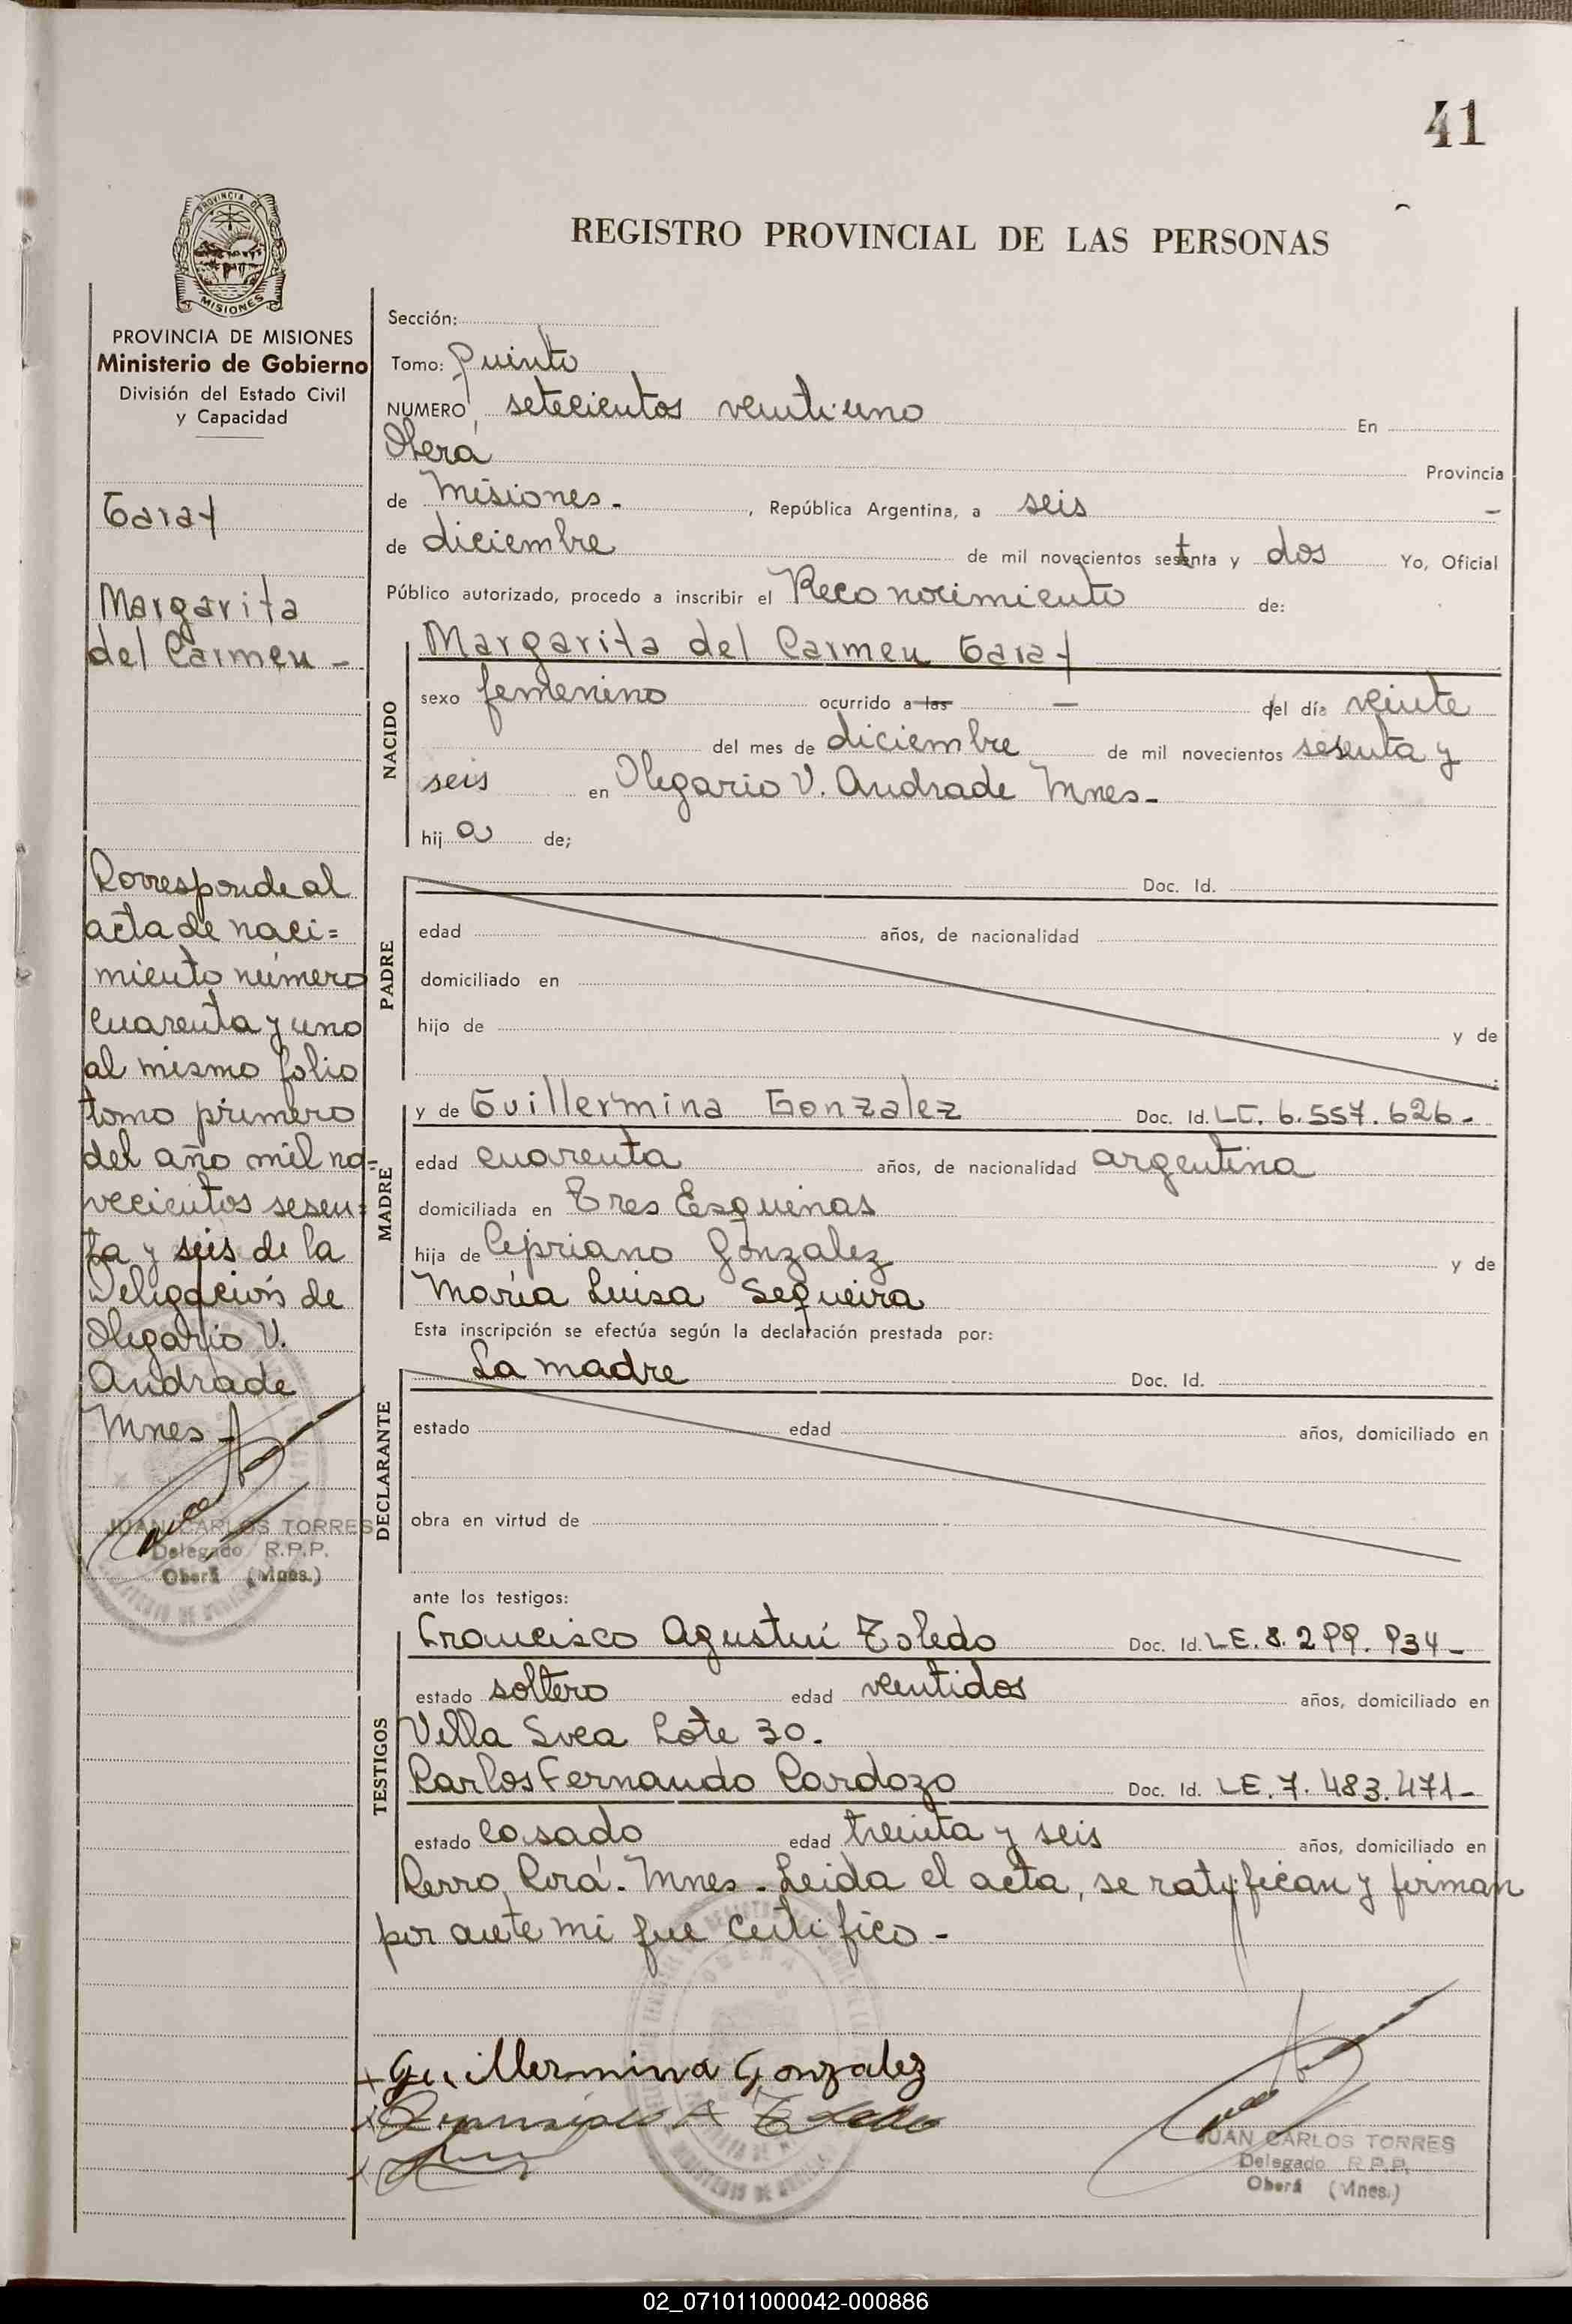 41
REGISTRO PROVINCIAL DE LAS PERSONAS
PROVINCIA DE
MISIONES
PROVINCIA DE MISIONES
Ministerio de Gobierno
División del Estado Civil
y Capacidad
Garay
Margarita
del Carmen -
Corresponde al
acta de naci=
miento número
cuarenta y uno
al mismo folio
tomo primero
del año mil no=
vecientos sesen=
ta y seis de la
Delegación de
Olegario V.
Andrade
Mnes -
JUAN CARLOS TORRES
Delegado R.P.P.
Oberá (Mnes.)
Sección:
Tomo: Quinto
NUMERO setecientos veintiuno En
Oberá Provincia
de Misiones. , República Argentina, a seis -
de diciembre de mil novecientos setenta y dos Yo, Oficial
Público autorizado, procedo a inscribir el Reconocimiento de:
NACIDO
Margarita del Carmen Garay
sexo femenino ocurrido a las — del día veinte
del mes de diciembre de mil novecientos sesenta y
seis en Olegario V. Andrade Mnes-
hij a de;
PADRE
Doc. Id.
edad años, de nacionalidad
domiciliado en
hijo de y de
MADRE
y de Guillermina Gonzalez Doc. Id. LC. 6.557.626-
edad cuarenta años, de nacionalidad argentina
domiciliada en Tres Esquinas
hija de Cipriano Gonzalez y de
María Luisa Sequeira
Esta inscripción se efectúa según la declaración prestada por:
DECLARANTE
La madre Doc. Id.
estado edad años, domiciliado en
obra en virtud de
ante los testigos:
TESTIGOS
Francisco Agustín Toledo Doc. Id. LE. 8.299.934-
estado soltero edad veintidos años, domiciliado en
Villa Svea Lote 30.
Carlos Fernando Cardozo Doc. Id. LE. 7.483.471-
estado casado edad treinta y seis años, domiciliado en
Cerro Corá. Mnes - Leida el acta, se ratifican y firman
por ante mi que certifico -
x Guillermina Gonzalez
x Francisco A Toledo
x
JUAN CARLOS TORRES
Delegado R.P.P.
Oberá (Mnes.)
02_071011000042-000886